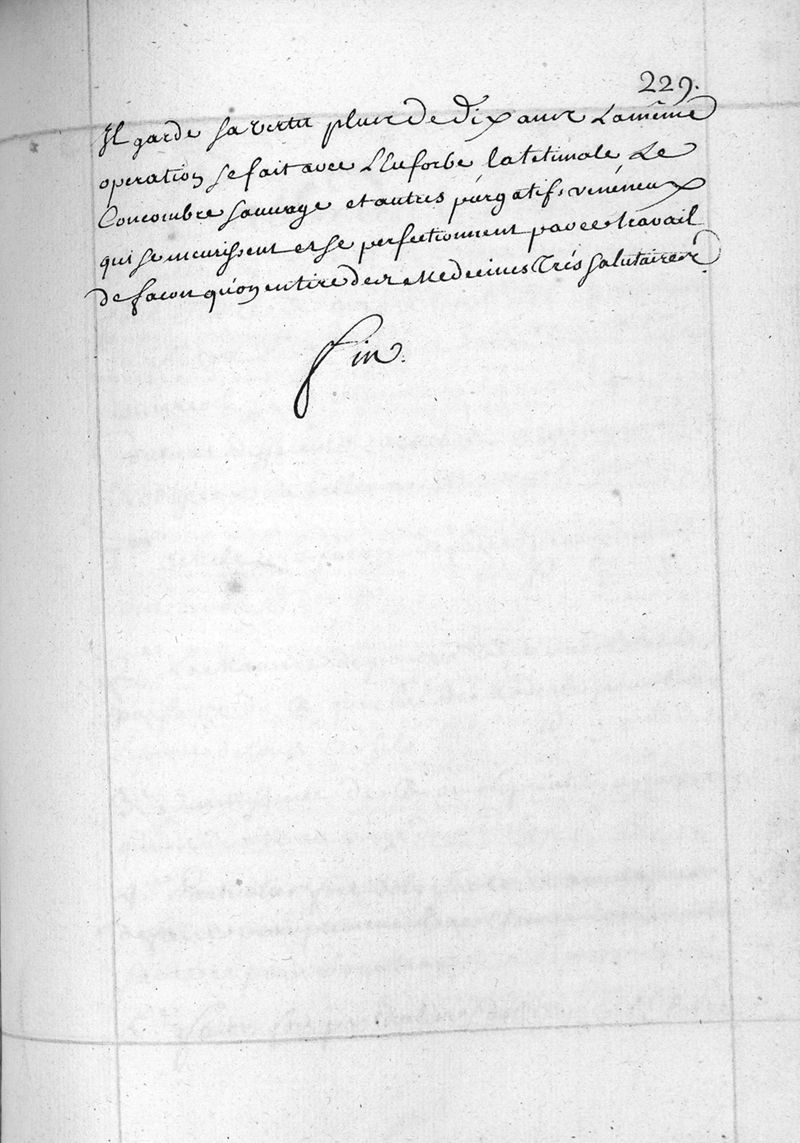 229.
Il garde sa vertu plus de dix ans La même
operation se fait avec L'Euforbe la titimale Le
Concombre sauvage et autres purgatifs vénéneux
qui se meurissent et se perfectionnent par ce travail
de facon qu'on en tire des Medecines Trés salutaires.
fin.